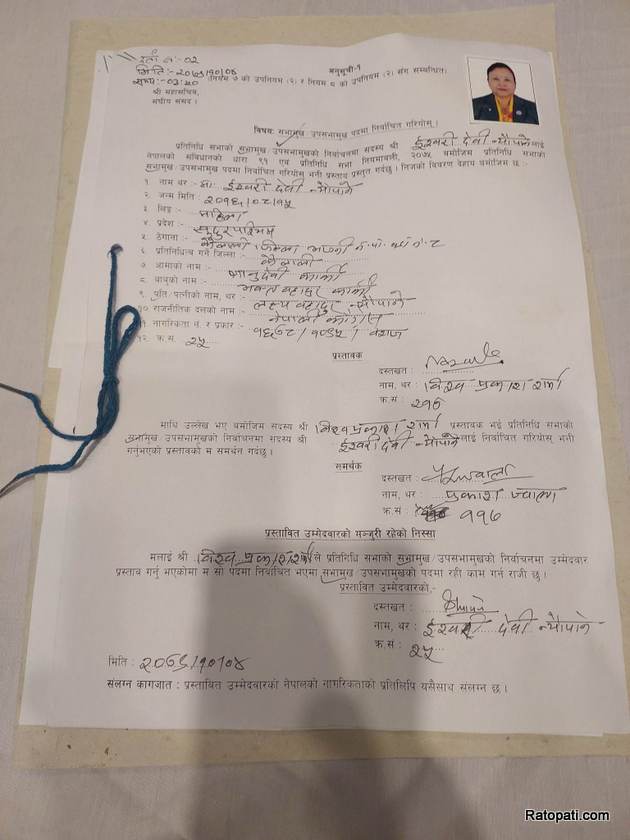 दर्ता नं:-02
मिति:- २०७९/१०/०४
समय:-03:20
अनुसूची-१
(नियम ७ को उपनियम (२) र नियम ८ को उपनियम (२) सँग सम्बन्धित)
श्री महासचिव,
संघीय संसद ।
विषय: सभामुख/उपसभामुख पदमा निर्वाचित गरियोस् ।
प्रतिनिधि सभाको सभामुख/उपसभामुखको निर्वाचनमा सदस्य श्री ईश्वरी देवी न्यौपाने लाई
नेपालको संविधानको धारा ९१ एवं प्रतिनिधि सभा नियमावली, २०७५ बमोजिम प्रतिनिधि सभाको
सभामुख/उपसभामुख पदमा निर्वाचित गरियोस् भनी प्रस्ताव प्रस्तुत गर्दछु । निजको विवरण देहाय बमोजिम छ:-
१. नाम थर:- मा. ईश्वरी देवी न्यौपाने
२. जन्म मिति:- २०१६/०८/१५
३. लिङ्ग:- महिला
४. प्रदेश:- सुदूरपश्चिम
५. ठेगाना:- कैलाली जिल्ला
६. प्रतिनिधित्व गर्ने जिल्ला:- कैलाली
७. आमाको नाम:- कार्की
८. बाबुको नाम:- भक्त बहादुर कार्की
९. पति/पत्नीको नाम, थर:- बहादुर न्यौपाने
१०. राजनीतिक दलको नाम:- नेपाली काँग्रेस
११. नागरिकता नं. र प्रकार:- वंशज
१२. क्र.सं. २५
प्रस्तावक
दस्तखत:
नाम, थर: विश्व प्रकाश शर्मा
क्र.सं:
माथि उल्लेख भए बमोजिम सदस्य श्री विश्व प्रकाश शर्मा प्रस्तावक भई प्रतिनिधि सभाको
सभामुख/उपसभामुखको निर्वाचनमा सदस्य श्री ईश्वरी देवी न्यौपाने लाई निर्वाचित गरियोस् भनी
गर्नुभएको प्रस्तावको म समर्थन गर्दछु ।
समर्थक
दस्तखत:
नाम, थर: प्रकाश ज्वाला
क्र.सं: ११७
प्रस्तावित उम्मेदवारको मञ्जुरी रहेको निस्सा
मलाई श्री विश्व प्रकाश शर्मा ले प्रतिनिधि सभाको सभामुख/उपसभामुखको निर्वाचनमा उम्मेदवार
प्रस्ताव गर्नु भएकोमा म सो पदमा निर्वाचित भएमा सभामुख/उपसभामुखको पदमा रही काम गर्न राजी छु ।
प्रस्तावित उम्मेदवारको,-
दस्तखत:
नाम, थर: ईश्वरी देवी न्यौपाने
क्र.सं: २५
मिति: २०७९/१०/०४
संलग्न कागजात: प्रस्तावित उम्मेदवारको नेपालको नागरिकताको प्रतिलिपि यसैसाथ संलग्न छ ।
Ratopati.com